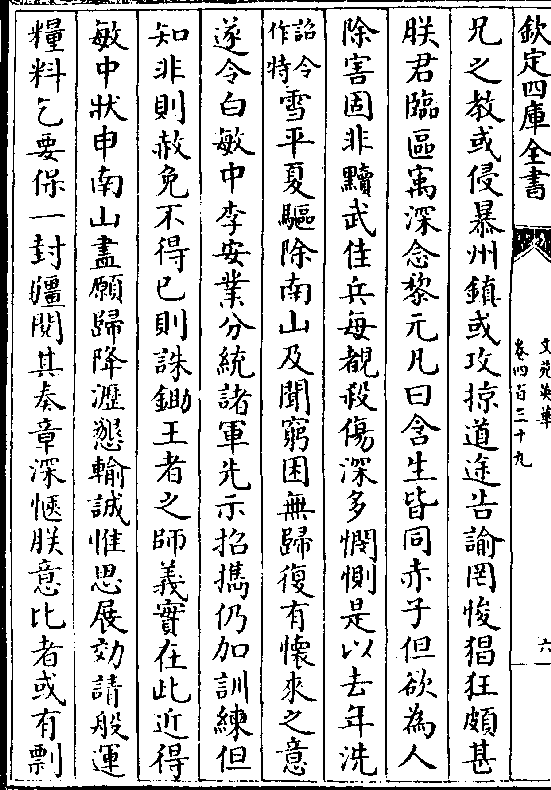 欽定四庫全書
文苑英華
卷四百三十九
六
兄之教或侵暴州鎮或攻掠道途告諭罔悛猖狂頗甚
朕君臨區寓深念黎元凡曰含生皆同赤子但欲為人
除害固非黷武佳兵每覩殺傷深多憫惻是以去年洗
詔令作特雪平夏驅除南山及聞窮困無歸復有懷來之意
遂令白敏中李安業分統諸軍先示招攜仍加訓練但
知非則赦免不得已則誅鋤王者之師義實在此近得
敏中狀申南山盡願歸降瀝懇輸誠惟思展効請般運
糧料乞要保一封疆閱其奏章深愜朕意比者或有剽